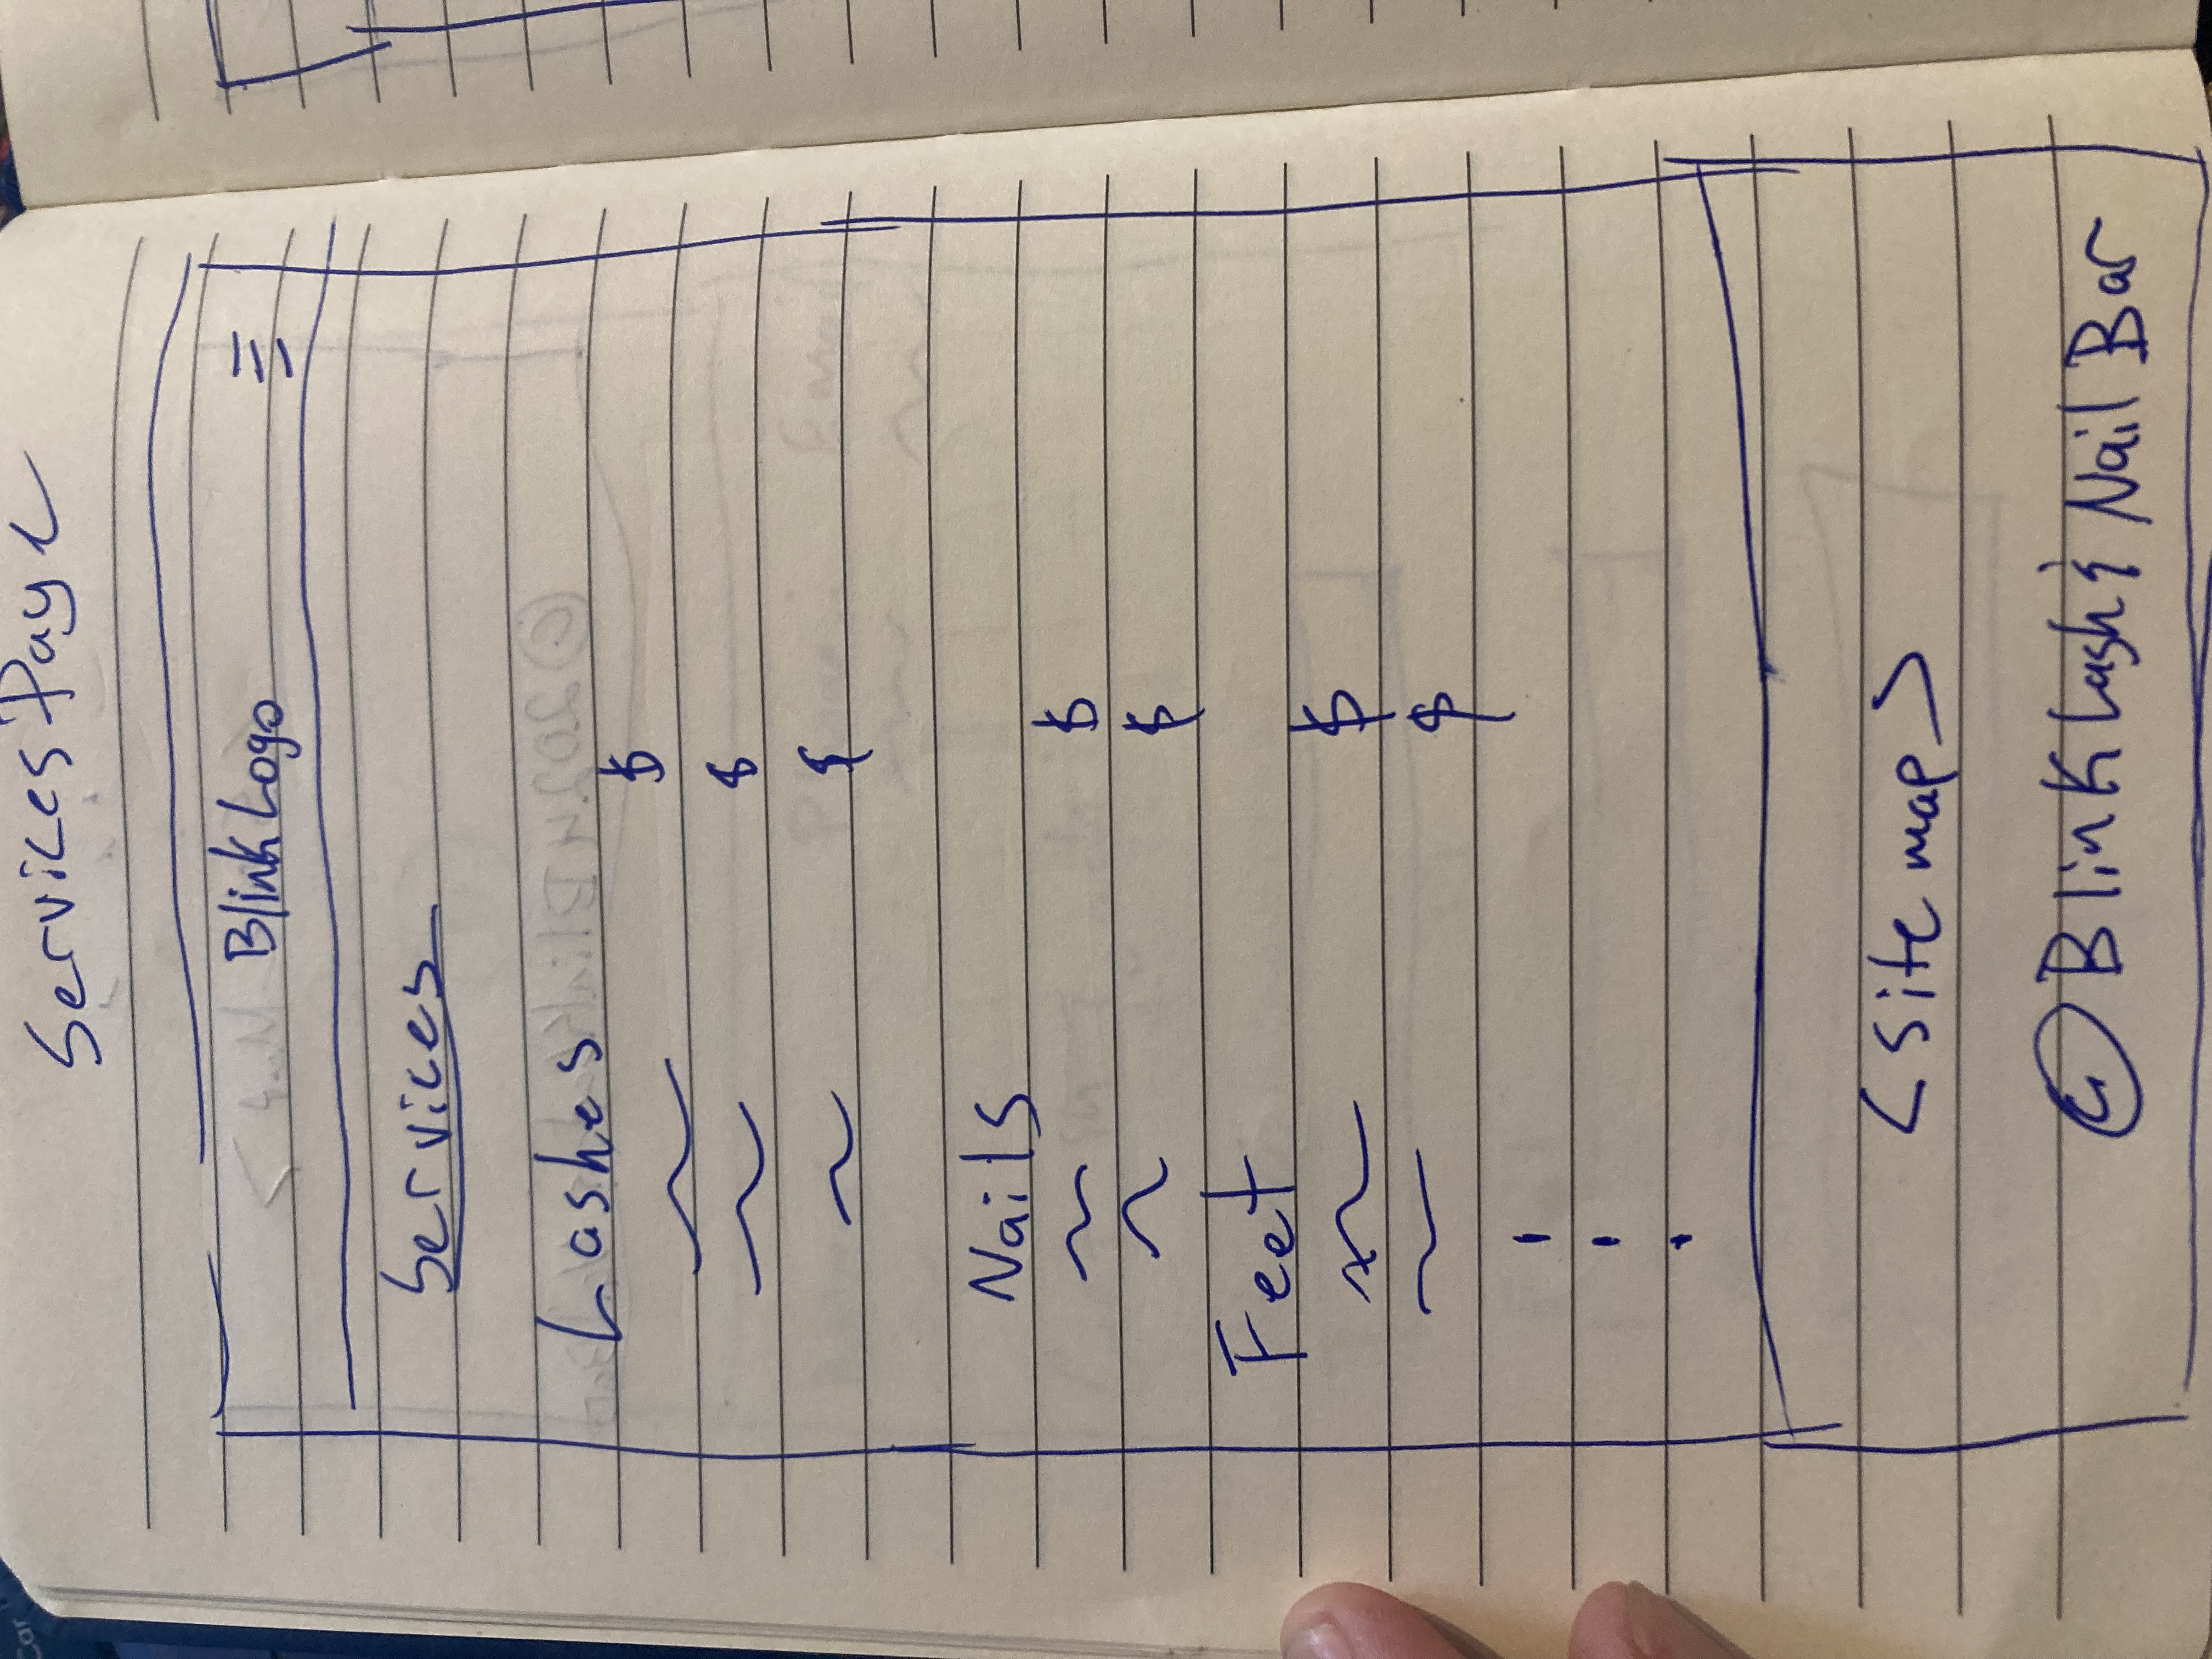 Services Page
Blink Logo
Services
Lashes
$
$
$
Nails
$
$
Feet
$
$
<Site map>
© Blink Lash & Nail Bar